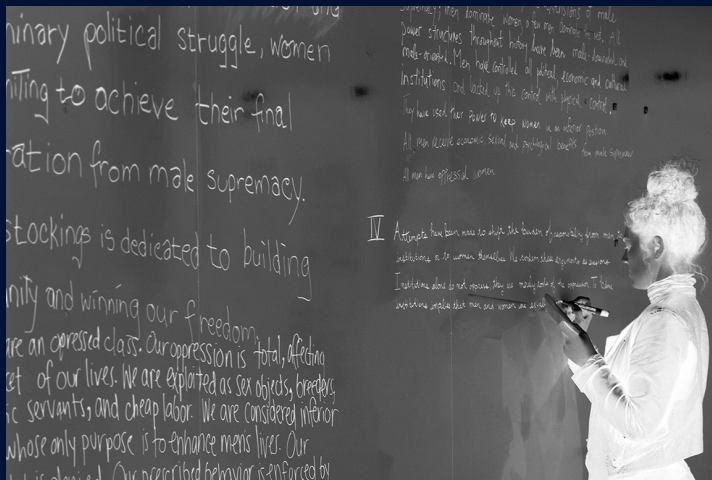 ninary political struggle, women
niTing to achieve their final
ration from male supremacy.
stockings is dedicated to building
nity and winning our freedom.
are an oppressed class. Our oppression is total, affecting
cet of our lives. We are exploited as sex objects, breeders,
ic servants, and cheap labor. We are considered inferior
whose only purpose is to enhance mens lives. Our
is denied. Our prescribed behavior is enforced by
of male
Supremacy; men dominate women a few men dominate the rest. All
power structures throughout history have been male-dominated and
male-oriented. Men have controlled all political, economic and cultural
institutions and backed up this control with physical control.
They have used their power to keep women in an inferior position.
All men receive economic, sexual and psychological benefits from male supremacy
All men have oppressed women.
IV Attempts have been made to shift the burden of responsibility from men to
institutions or to women themselves. We condemn these arguments as evasions
Institutions alone do not oppress, they are merely tools of the oppressor. To blame
institutions implies that men and women are equal